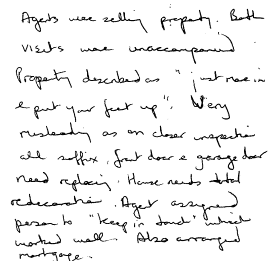 Agents were selling property. Both
visits were unaccompanied
Property described as "just move in
& put your feet up". Very
misleading as on closer inspection
all suffix, front door & garage door
need replacing. House needs total
redecoration. Agent assigned
person to "keep in touch" which
worked well. Also arranged
mortgage.